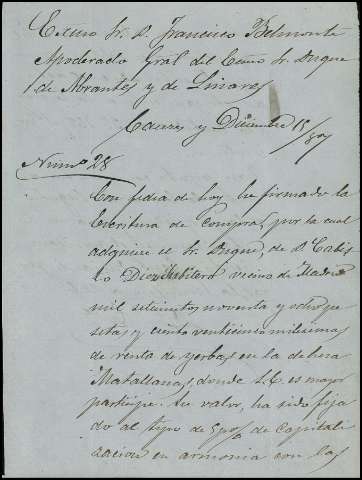 Excmo Sr. D. Francisco Belmonte
Apoderado Gral del Excmo Sr. Duque
de Abrantes y de Linares
Caceres y Diciembre 15/
Numo 28
Con fecha de hoy, he firmado la
Escritura de compra, por la cual
adquiere el Sr. Duque, de D.
vecino de Madrid
mil setecientas noventa y ocho pe
setas y ciento veinticinco milesimas
de renta de yerbas, en la dehesa
Matallana, donde S.E. es mayor
participe. Su valor, ha sido fija
do al tipo de 5 p% de Capitali
zacion en armonia con las